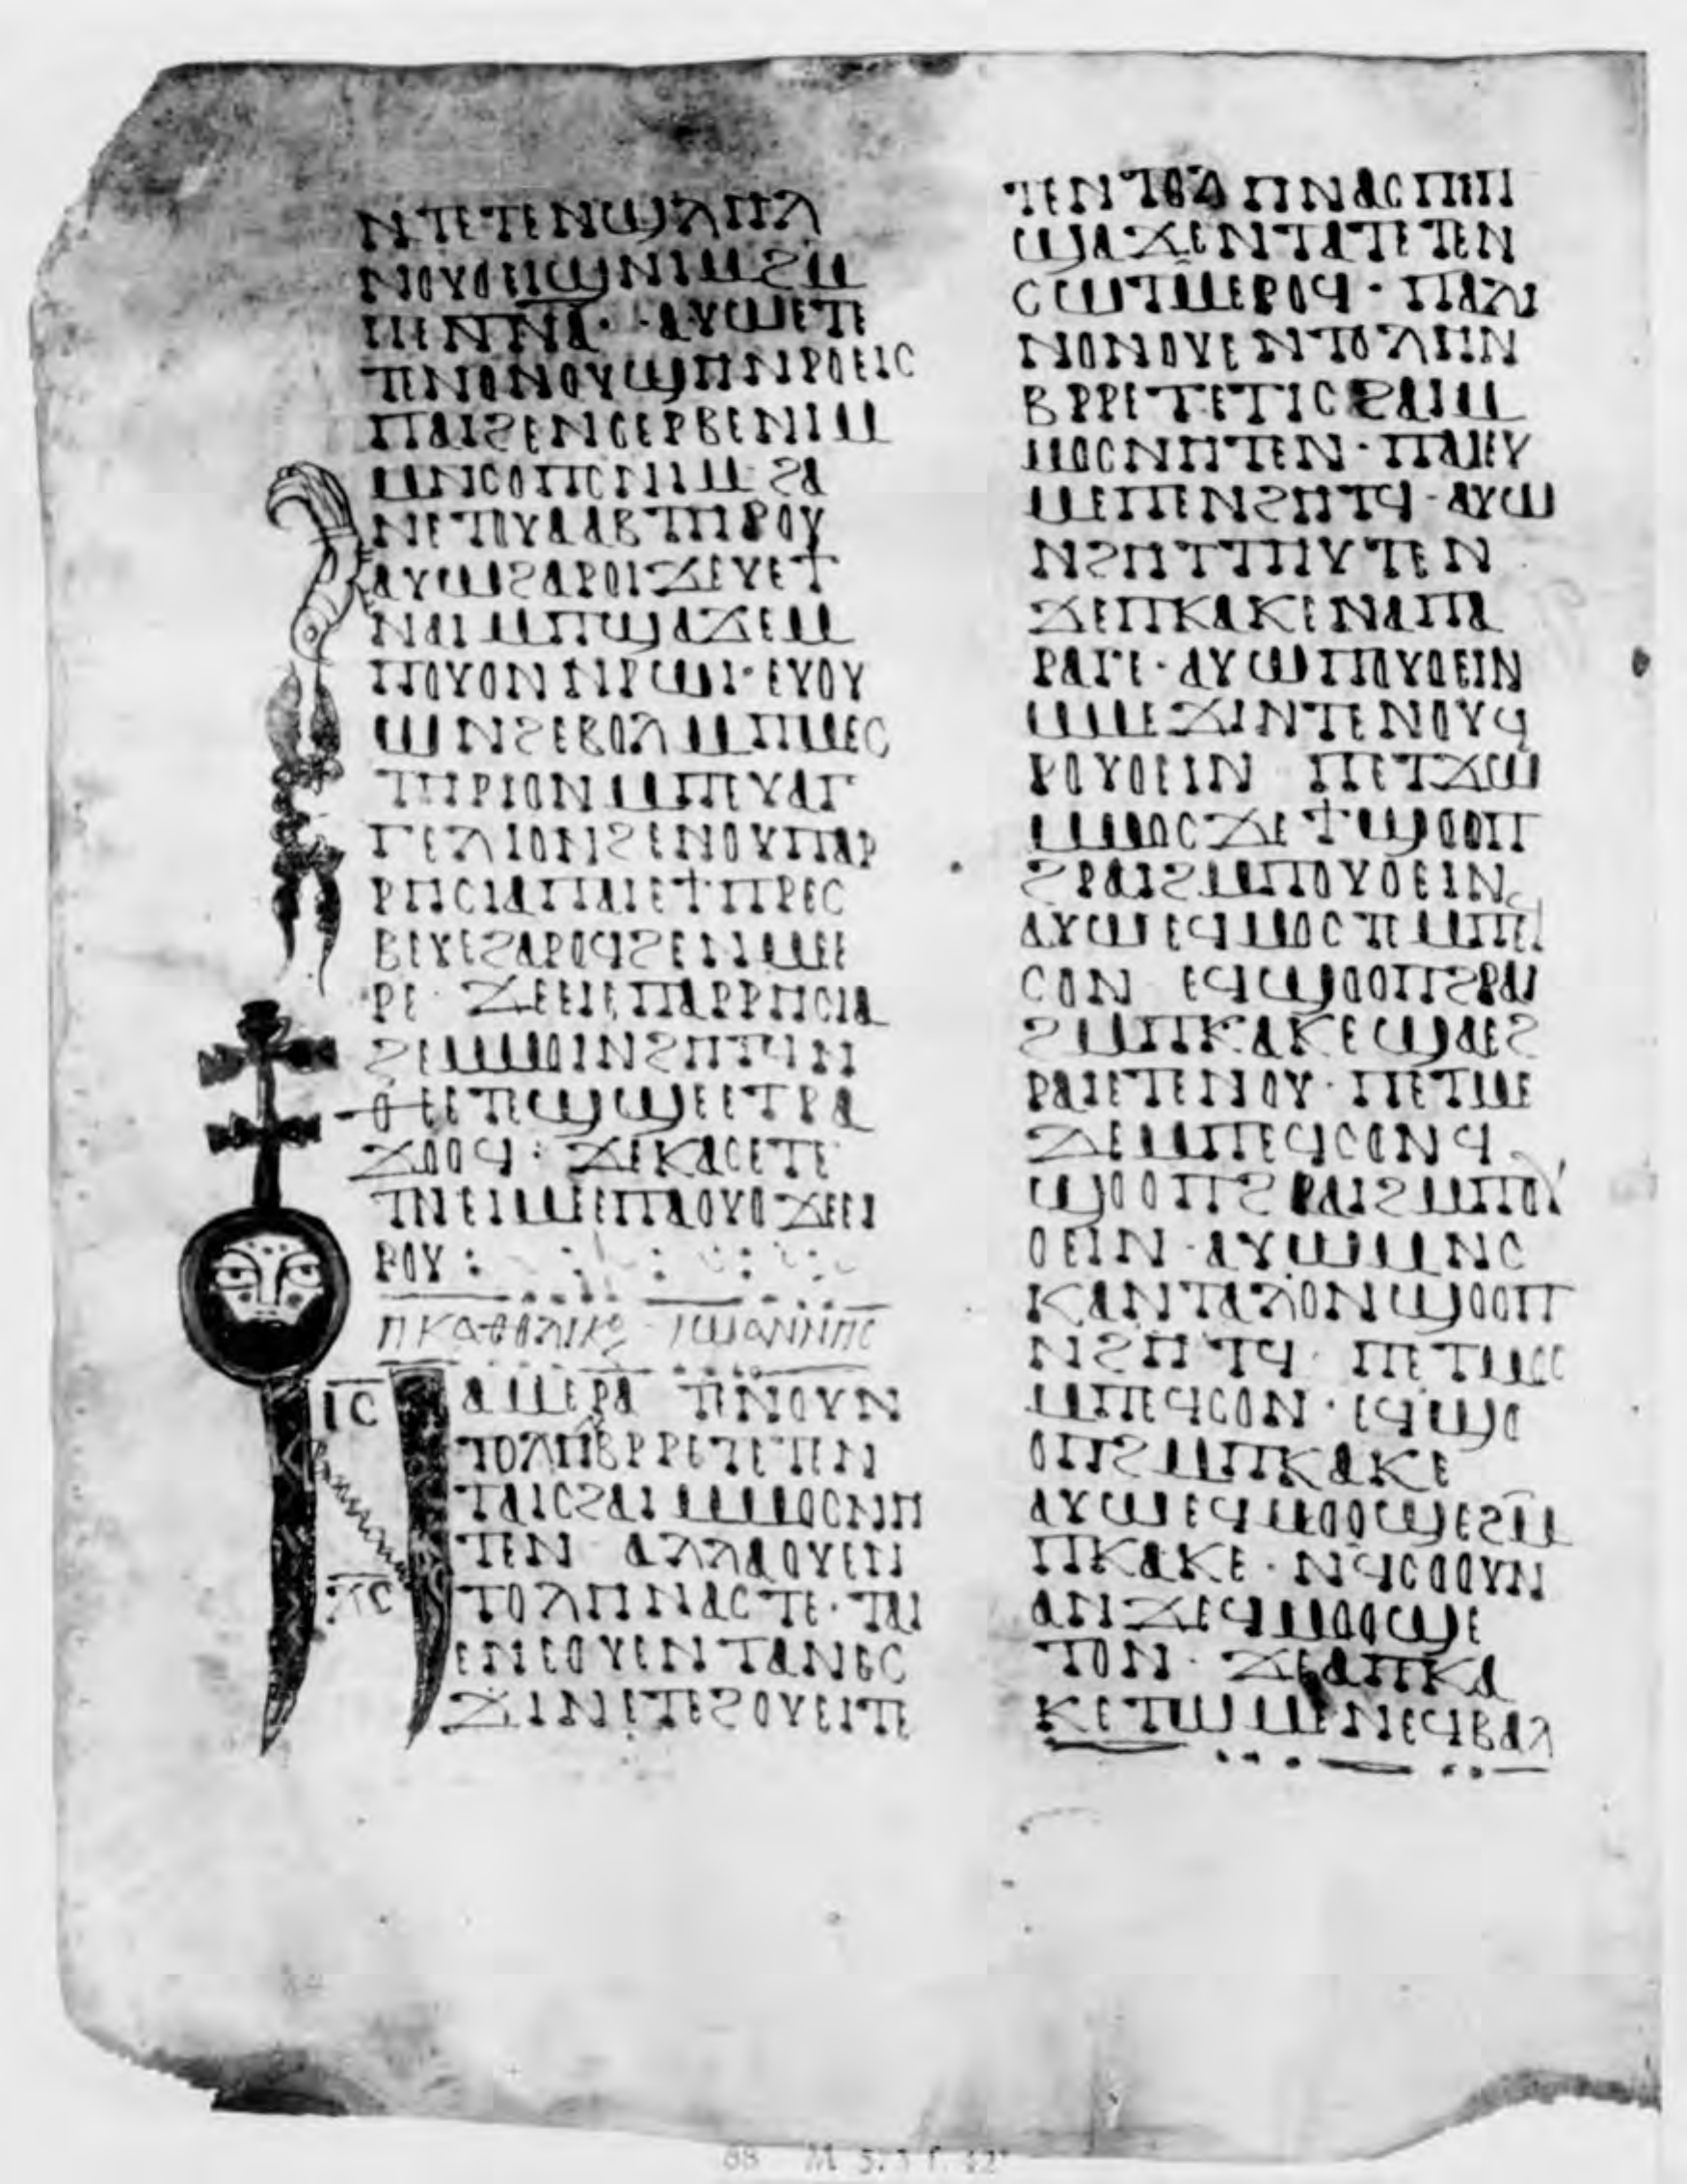 ⲛⲧⲉⲧⲉⲛϣⲗⲏⲗ
ⲛⲟⲩⲟⲉⲓϣⲛⲓⲙϩⲙ
ⲡⲉⲡ̅ⲛ̅ⲁ̅· ⲁⲩⲱⲉⲧⲉ
ⲧⲉⲛⲟⲛⲟⲩϣⲏⲛⲣⲟⲉⲓⲥ
ⲡⲁⲓϩⲉⲛⲥⲉⲣⲃⲉⲛⲓⲙ
ⲙⲛⲥⲟⲡⲥⲛⲓⲙ ϩⲁ
ⲛⲉⲧⲟⲩⲁⲁⲃⲧⲏⲣⲟⲩ
ⲁⲩⲱϩⲁⲣⲟⲓϫⲉⲩⲉϯ
ⲛⲁⲓⲙⲡϣⲁϫⲉⲙ
ⲡⲟⲩⲟⲛⲛⲣⲱⲓ· ⲉⲩⲟⲩ
ⲱⲛϩⲉⲃⲟⲗⲙⲡⲙⲉⲥ
ⲧⲏⲣⲓⲟⲛⲙⲡⲉⲩⲁⲅ
ⲅⲉⲗⲓⲟⲛϩⲉⲛⲟⲩⲡⲁⲣ
ⲣⲏⲥⲓⲁⲡⲁⲓⲉϯⲡⲣⲉⲥ
ⲃⲉⲩⲉϩⲁⲣⲟϥϩⲉⲛⲙⲉⲉ
ⲣⲉ· ϫⲉⲉⲓⲉⲡⲁⲣⲣⲏⲥⲓⲁ
ϩⲉⲙⲙⲟⲓⲛϩⲏⲧϥⲛ
ⲑⲉⲉⲧⲉϣϣⲉⲉⲧⲣⲁ
ϫⲟⲟϥ: ϫⲉⲕⲁⲥⲉⲧⲉ
ⲧⲛⲉⲓⲙⲉⲉⲡⲁⲟⲩⲟϫⲉⲉⲓ
ⲣⲟⲩ:
ⲡⲕⲁⲑⲟⲗⲓⲕⲟ ⲓⲱⲁⲛⲛⲏⲥ
ⲓ̅ⲥ̅
ⲭ̅ⲥ̅
ⲛⲁⲙⲉⲣⲁⲧⲉ ⲛⲟⲩⲛ
ⲧⲟⲗⲏⲃⲣⲣⲉⲧⲉⲧⲉⲛ
ⲧⲁⲓⲥϩⲁⲓⲙⲙⲟⲥⲛⲏ
ⲧⲉⲛ ⲁⲗⲗⲁⲟⲩⲉⲛ
ⲧⲟⲗⲏⲛⲁⲥⲧⲉ· ⲧⲁⲓ
ⲉⲛⲉⲟⲩⲉⲛⲧⲁⲛⲉⲥ
ϫⲓⲛⲉⲧⲉϩⲟⲩⲉⲓⲧⲉ
ⲧⲉⲛⲧⲟⲗⲏⲛⲁⲥⲡⲉⲡ
ϣⲁϫⲉⲛⲧⲁⲧⲉⲧⲉⲛ
ⲥⲱⲧⲙⲉⲣⲟϥ· ⲡⲁⲗⲓ
ⲛⲟⲛⲟⲩⲉⲛⲧⲟⲗⲏⲛ
ⲃⲣⲣⲉⲧⲉⲧⲓⲥϩⲁⲓⲙ
ⲙⲟⲥⲛⲏⲧⲉⲛ· ⲡⲁⲓⲉⲩ
ⲙⲉⲡⲉⲛϩⲏⲧϥ· ⲁⲩⲱ
ⲛϩⲏⲧⲧⲏⲩⲧⲉⲛ
ϫⲉⲡⲕⲁⲕⲉⲛⲁⲡⲁ
ⲣⲁⲅⲉ· ⲁⲩⲱⲡⲟⲩⲟⲉⲓⲛ
ⲙⲙⲉϫⲓⲛⲧⲉⲛⲟⲩϥ
ⲣⲟⲩⲟⲉⲓⲛ ⲡⲉⲧϫⲱ
ⲙⲙⲟⲥϫⲉϯϣⲟⲟⲡ
ϩⲣⲁⲓϩⲙⲡⲟⲩⲟⲉⲓⲛ
ⲁⲩⲱⲉϥⲙⲟⲥⲧⲉⲙⲡⲉϥ
ⲥⲟⲛ ⲉϥϣⲟⲟⲡϩⲣⲁⲓ
ϩⲙⲡⲕⲁⲕⲉϣⲁⲉϩ
ⲣⲁⲓⲉⲧⲉⲛⲟⲩ· ⲡⲉⲧⲙⲉ
ϫⲉⲙⲡⲉϥⲥⲟⲛϥ
ϣⲟⲟⲡϩⲣⲁⲓϩⲙⲡⲟⲩ
ⲟⲉⲓⲛ· ⲁⲩⲱⲙⲙⲛⲥ
ⲕⲁⲛⲧⲁⲗⲟⲛϣⲟⲟⲡ
ⲛϩⲏⲧϥ· ⲡⲉⲧⲙⲟⲥ
ⲙⲡⲉϥⲥⲟⲛ· ⲉϥϣⲟ
ⲟⲡϩⲙⲡⲕⲁⲕⲉ
ⲁⲩⲱⲉϥⲙⲟⲟϣⲉϩⲙ
ⲡⲕⲁⲕⲉ· ⲛϥⲥⲟⲟⲩⲛ
ⲁⲛϫⲉϥⲙⲟⲟϣⲉ
ⲧⲟⲛ· ϫⲉⲁⲡⲕⲁ
ⲕⲉⲧⲱⲙⲛⲉϥⲃⲁⲗ